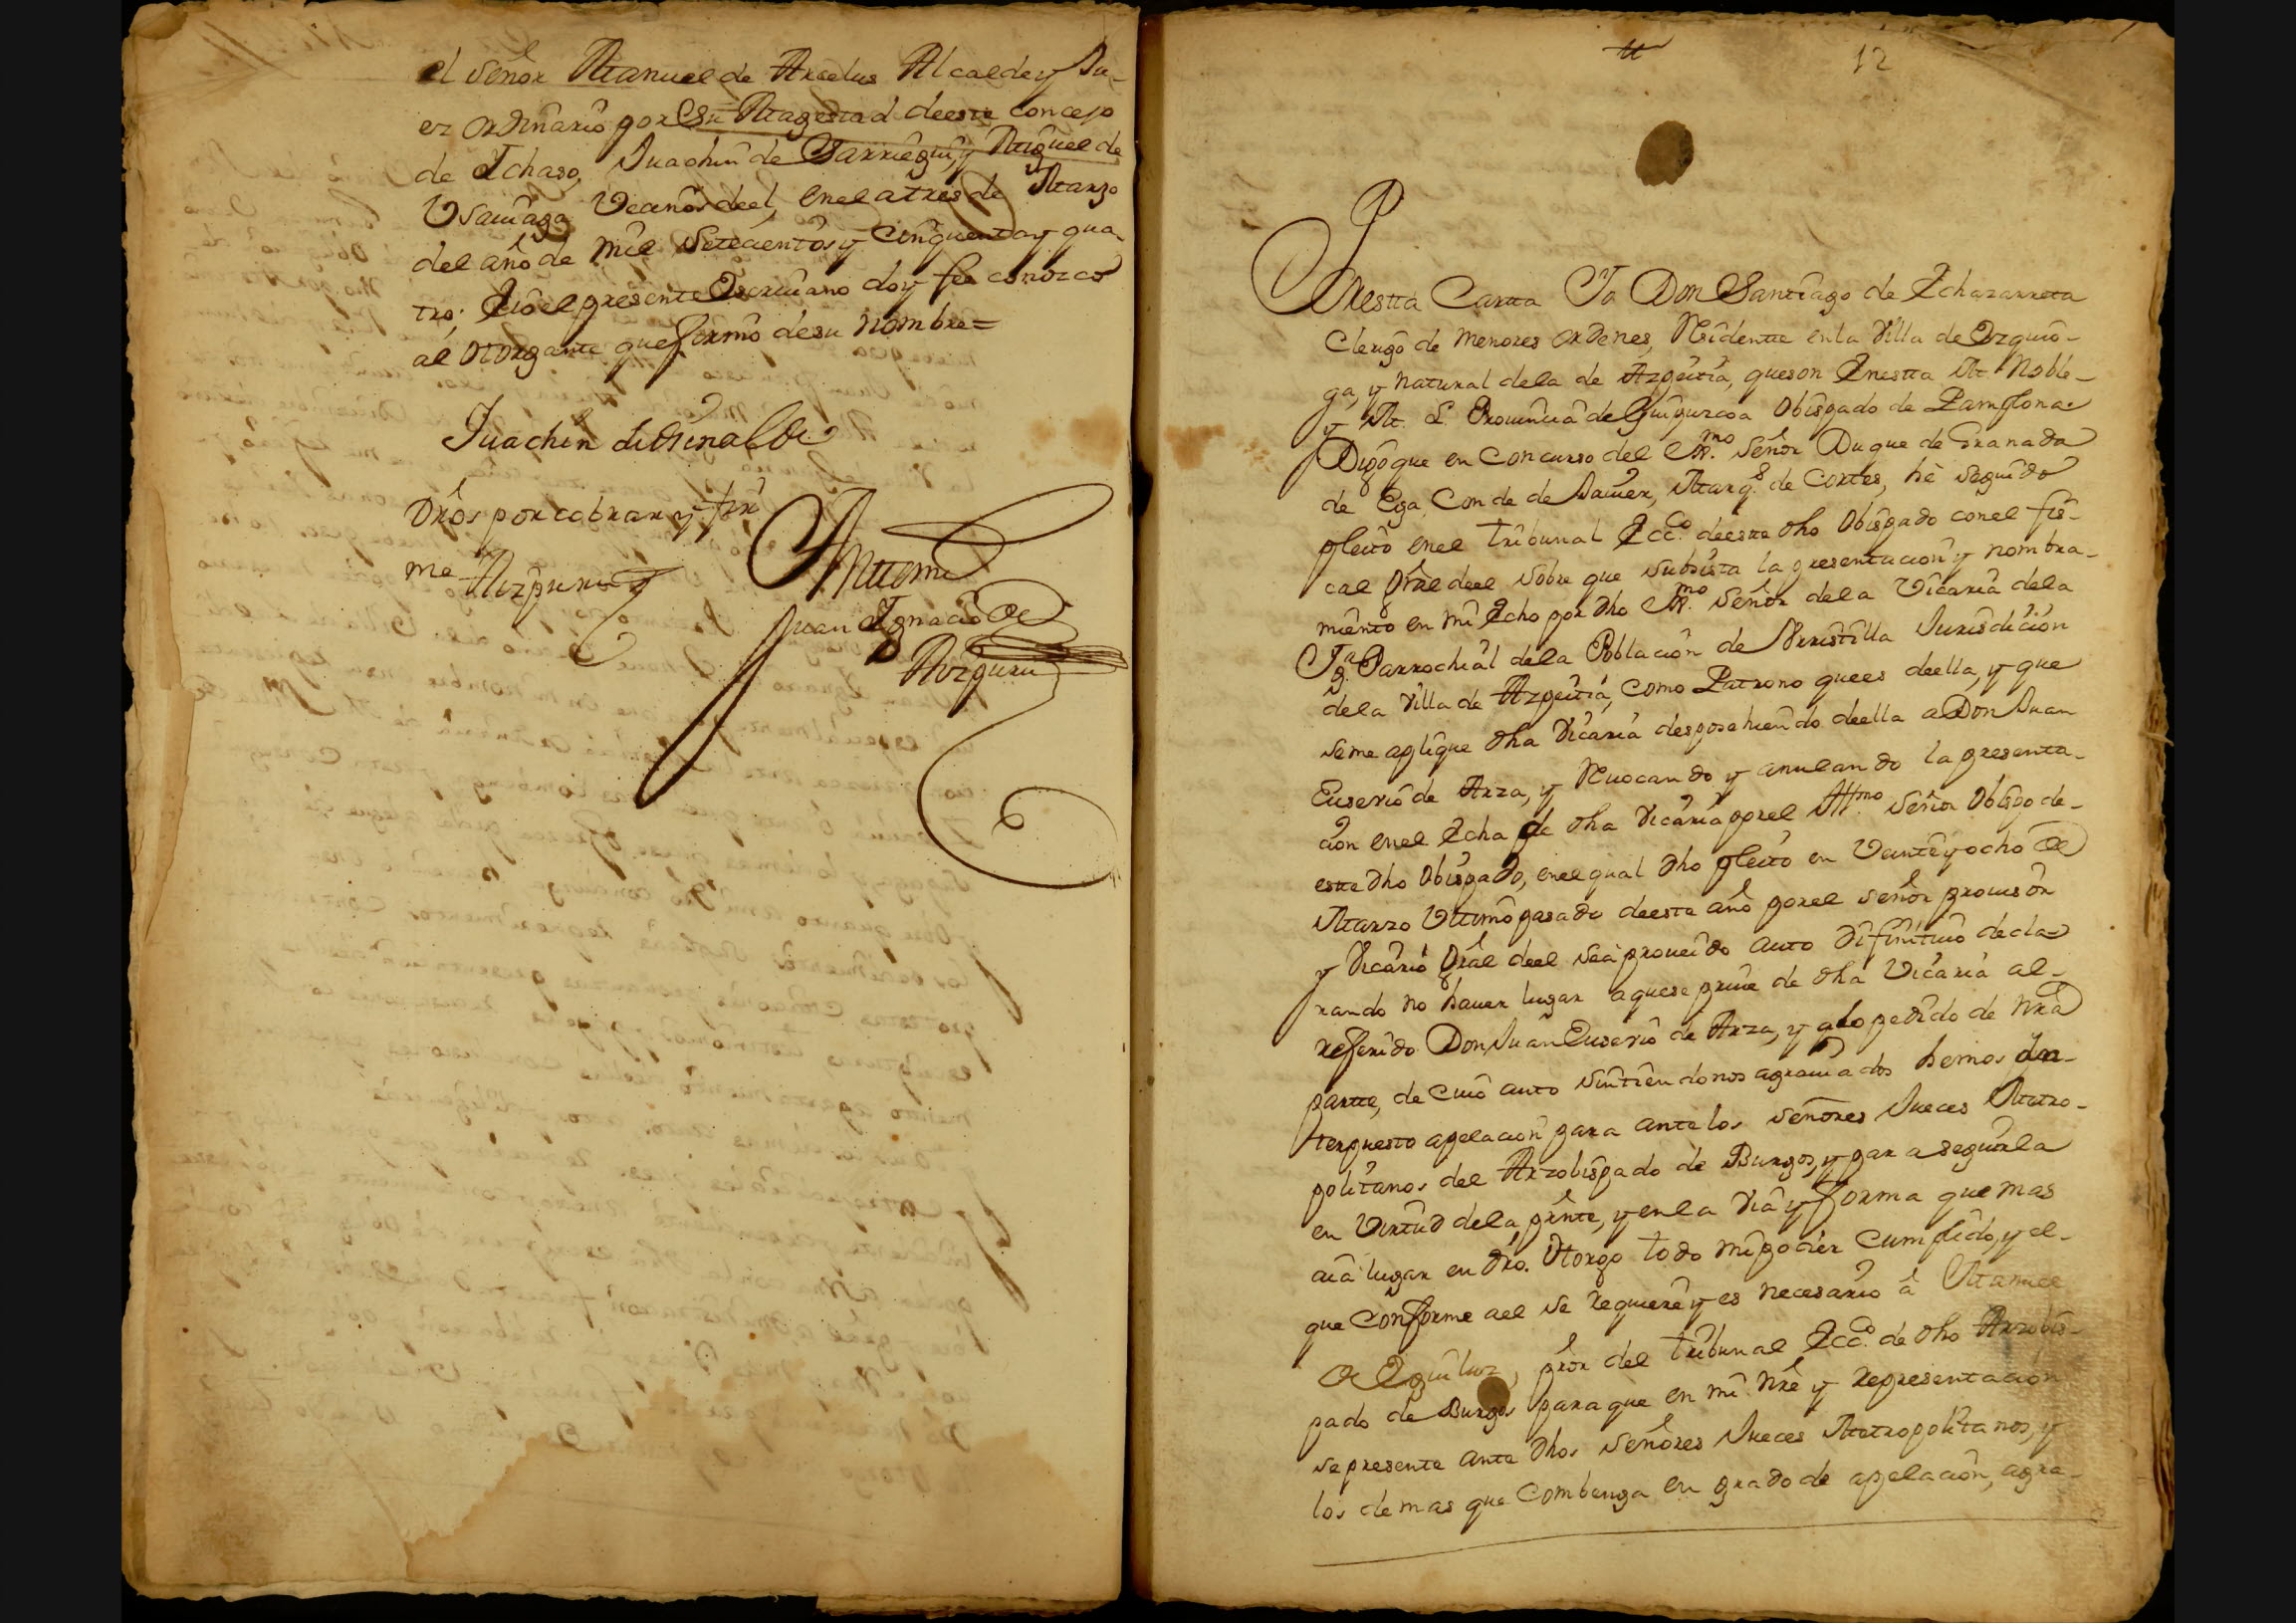 el Señor Manuel de Arcelus Alcalde y Ju-
ez ordinario por Su Magestad de este concejo
de Ichaso, Juachin de Sarriegui, y Miguel de
Usauiaga Vecinos de el, en el a tres de Marzo
del año de mil Setecientos y Cinquenta y qua-
tro. E io el presente Escriuano doy fee conozco
al otorgante que firmo de su nombre=
Juachin de
Drôs por cobrar y fir
me Aizpuru
Antemi
Juan Ignacio de
Aizpuru
tt
12
En estta Cartta Io Don Santiago de Echazarreta
Clerigo de menores ordenes, Residentte en la Villa de Ozquio-
ga, y natural de la de Azpeitia, que son En estta M. Noble
y M. L. Prouincia de Guipuzcoa Obispado de Pamplona=
Digo que en Concurso del Ex.mo Señor Duque de Granada
de Ega, Conde de Jauier, Marq.s de Cortes, hê seguido
pleito en el tribunal Ecc.co de este dho Obispado con el fis-
cal Grâl de el sobre que subsista la presentacion y nombra-
miento en mi Echo por dho Ex.mo Señor de la Vicaria de la
Ig.a Parrochial de la Poblacion de Urrestilla Jurisdicion
de la Villa de Azpeitia, como Patrono que es de ella, y que
se me aplique dha Vicaria desposehiendo de ella a Don Juan
Euserio de Arza, y Reuocando y anulando la presenta-
cion en el Echa de dha Vicaria por el Ill.mo Señor Obispo de
este dho Obispado, en el qual dho pleito en Veinte y ocho de
Marzo Ultimo pasado de este año por el Señor prouisor
y Vicario Grâl de el se â proueido auto difinitiuo decla-
rando no hauer lugar a que se priue de dha Vicaria al
referido Don Juan Euserio de Arza, y a lo pedido de nrâ
partte, de cuio auto sintiendonos agrauiados hemos in-
terpuesto apelacion para ante los Señores Jueces Metro-
politanos del Arzobispado de Burgos, y para seguirla
en Virtud de la presînte, y en la via y forma que mas
aiâ lugar en drô. Otorgo todo mi poder Cumplido, y el
que Conforme a el se requiere y es necesario â Manuel
de Eguiluz, prôr del tribunal Ecc.co de dho Arzobis-
pado de Burgos para que en mi Nrê y representacion
se presente ante dhos Señores Jueces Metropolitanos, y
los demas que Combenga en grado de apelacion, agra-